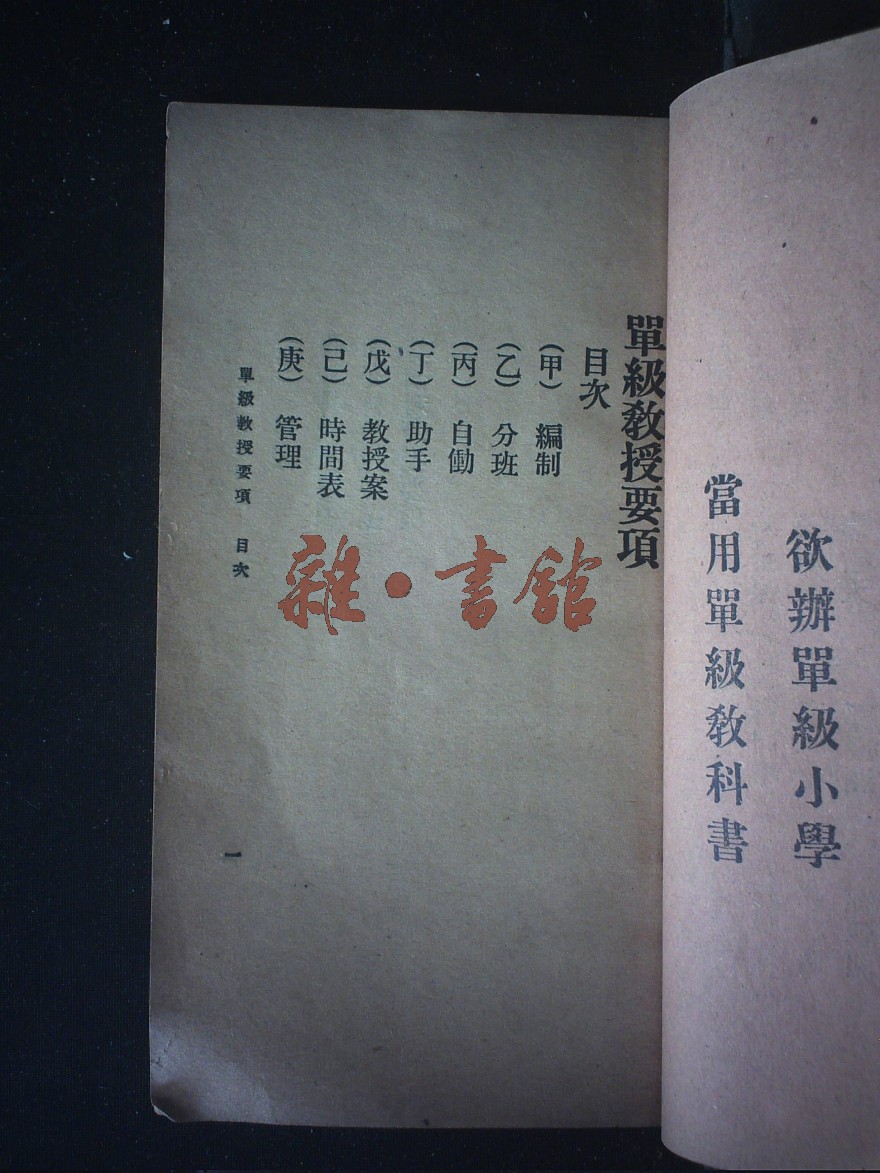 欲辦單級小學
當用單級教科書
單級教授要項
目次
(甲) 編制
(乙) 分班
(丙) 自働
(丁) 助手
(戊) 教授案
(己) 時間表
(庚) 管理
單級教授要項 目次
一
雜·書館